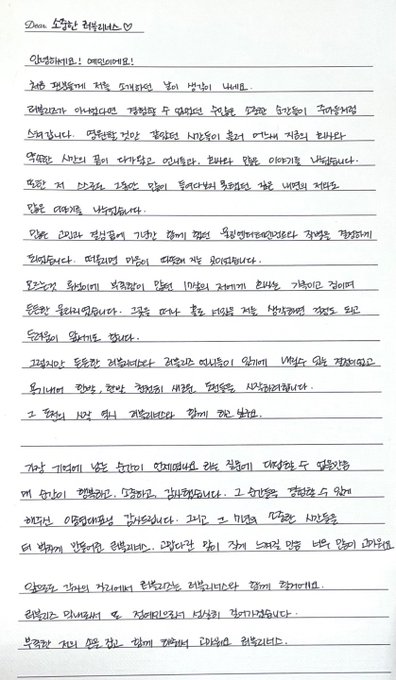 Dear. 소중한 러블리너스♡
안녕하세요! 예인이에요!
처음 팬분들께 저를 소개하던 날이 생각이 나네요.
러블리즈가 아니었다면 경험할 수 없었던 수많은 소중한 순간들이 주마등처럼
스쳐갑니다. 영원할 것만 같았던 시간들이 흘러 어느새 지금의 회사와
약속한 시간의 끝이 다가왔고 언니들과, 회사와 많은 이야기를 나눴습니다.
또한 저 스스로도 그동안 많이 들여다보지 못했던 깊은 내면의 저와도
많은 이야기를 나누었습니다.
많은 고민과 결심 끝에 7년간 함께 했던 울림엔터테인먼트와 작별을 결정하게
되었습니다. 떠올리면 마음이 따뜻해 지는 곳이었습니다.
모르는것 투성이에 부족함이 많던 17살의 저에게 회사는 가족이고 집이며
든든한 울타리였습니다. 그곳을 떠나 홀로 나아갈 저를 생각하면 걱정도 되고
두려움이 앞서기도 합니다.
그렇지만 든든한 러블리너스와 러블리즈 언니들이 있기에 내릴수 있는 결정이었고
용기내어 한발, 한발 천천히 새로운 도전들을 시작하려합니다.
그 도전의 시작 역시 러블리너스와 함께 하고 싶어요.
가장 기억에 남는 순간이 언제였나요 라는 질문에 대답할 수 없을만큼
매 순간이 행복하고, 소중하고, 감사했습니다. 그 순간들을 경험할 수 있게
해주신 이중엽대표님 감사드립니다. 그리고 그 7년의 소중한 시간들을
더 벅차게 만들어준 러블리너스. 고맙다란 말이 작게 느껴질 만큼 너무 많이 고마워요
앞으로도 각자의 자리에서 러블리즈는 러블리너스와 함께 할거에요.
러블리즈 막내로서 또 정예인으로서 성실히 걸어가겠습니다.
부족한 저의 손을 잡고 함께 해줘서 고마워요 러블리너스.